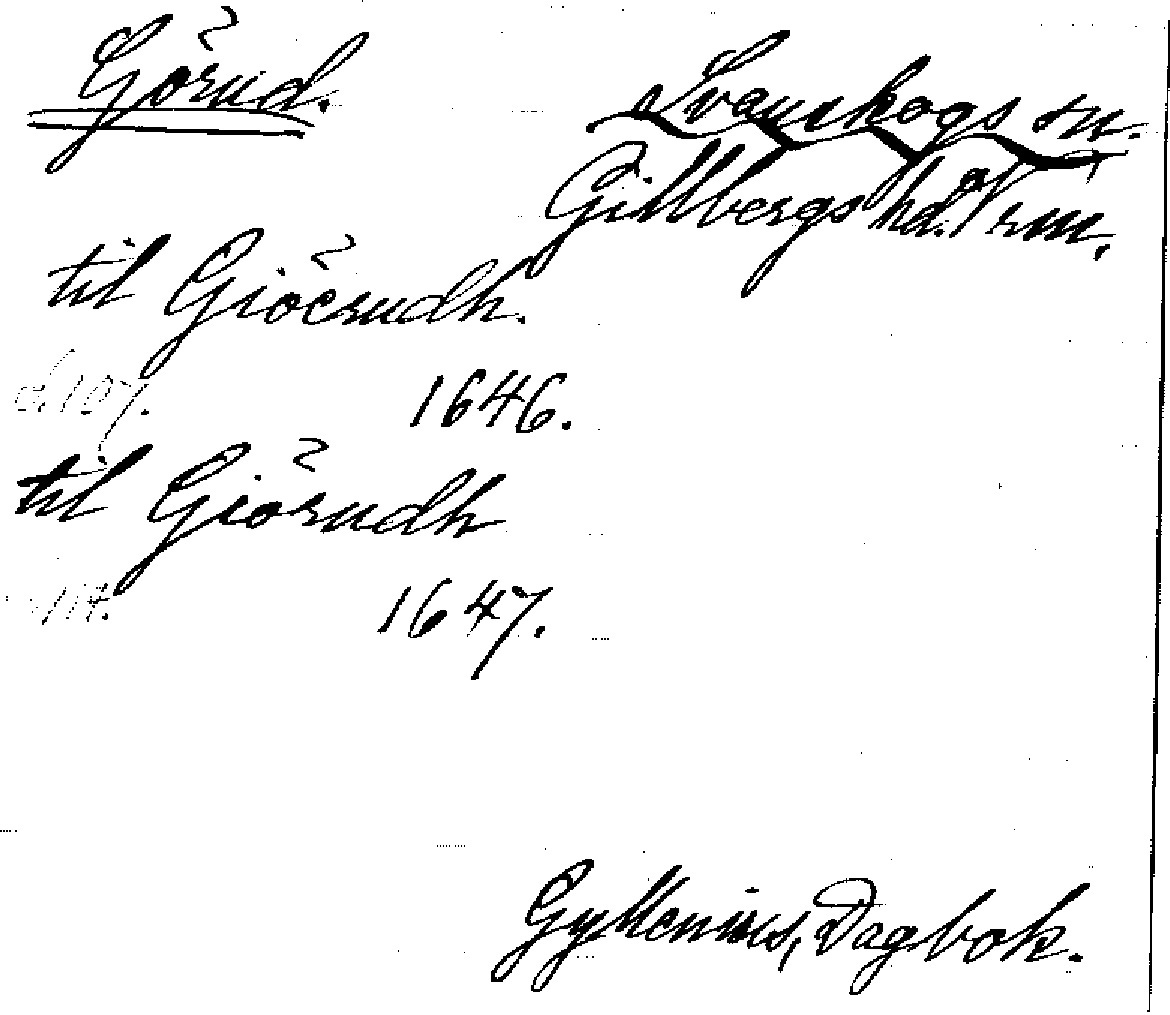 Görud.
Svanskogs sn.
Gillbergs hd. Vrm.
til Giöerudh.
d. 107. 1646.
til Giörudh
117. 1647.
Gyllenius, Dagbok.